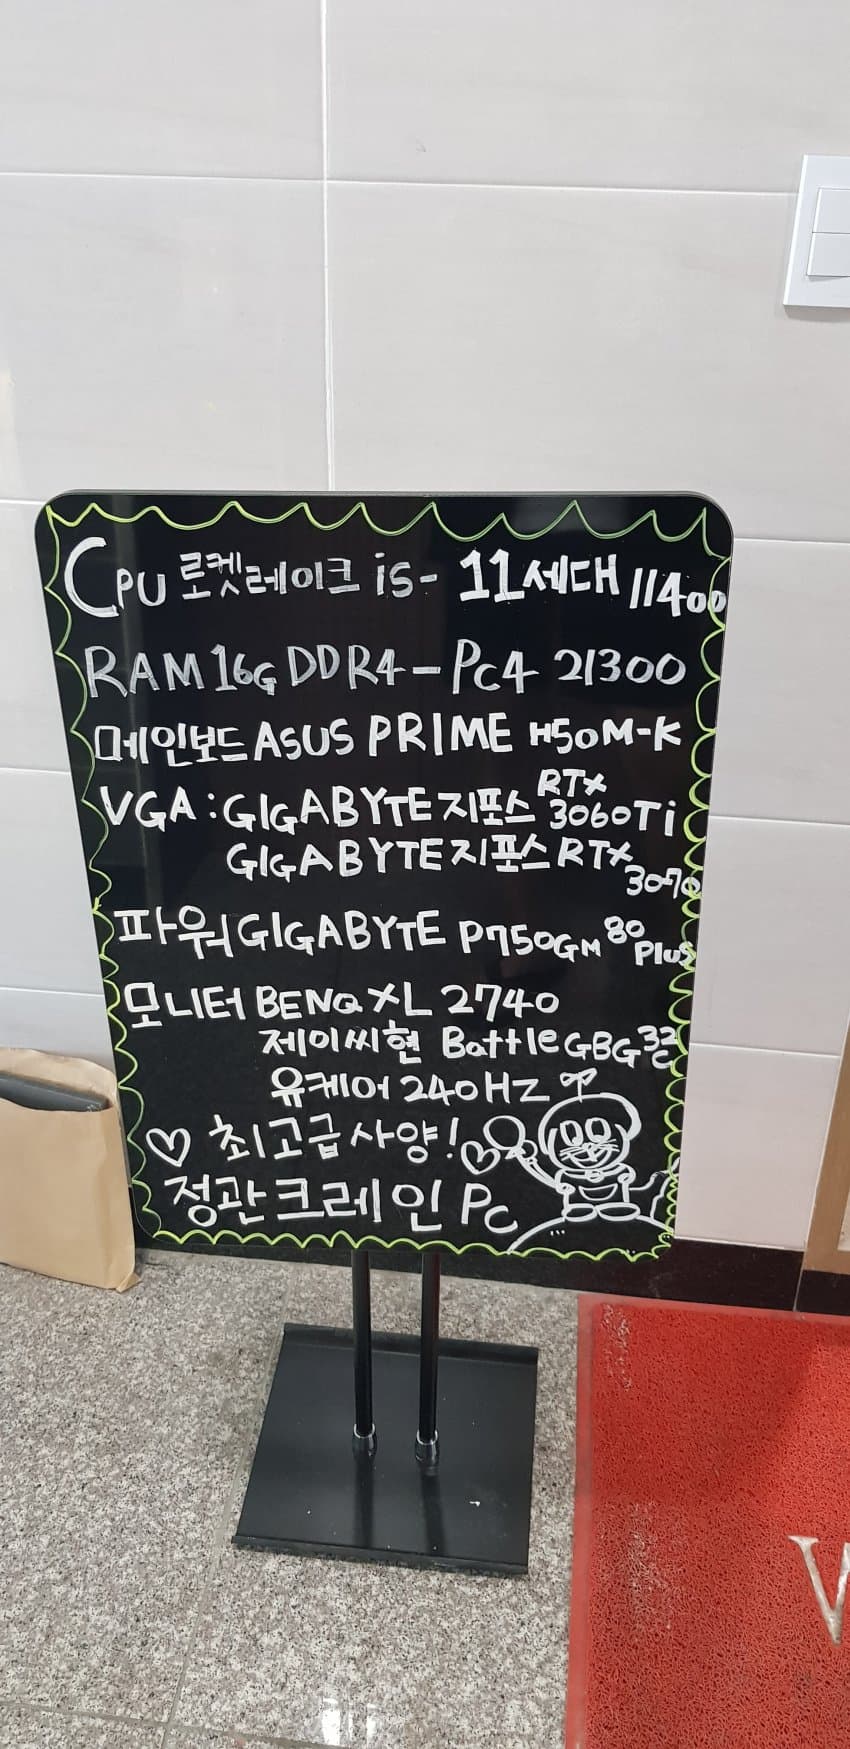 CPU 로켓레이크 i5- 11세대 11400
RAM 16G DDR4-PC4 21300
메인보드 ASUS PRIME H50M-K
VGA : GIGABYTE 지포스 RTX 3060Ti
GIGABYTE 지포스 RTX 3070
파워 GIGABYTE P750GM 80 Plus
모니터 BENQ XL 2740
제이씨현 Battle GBG 32C
유케어 240HZ
♡ 최고급사양! ♡
정관크레인 PC
W